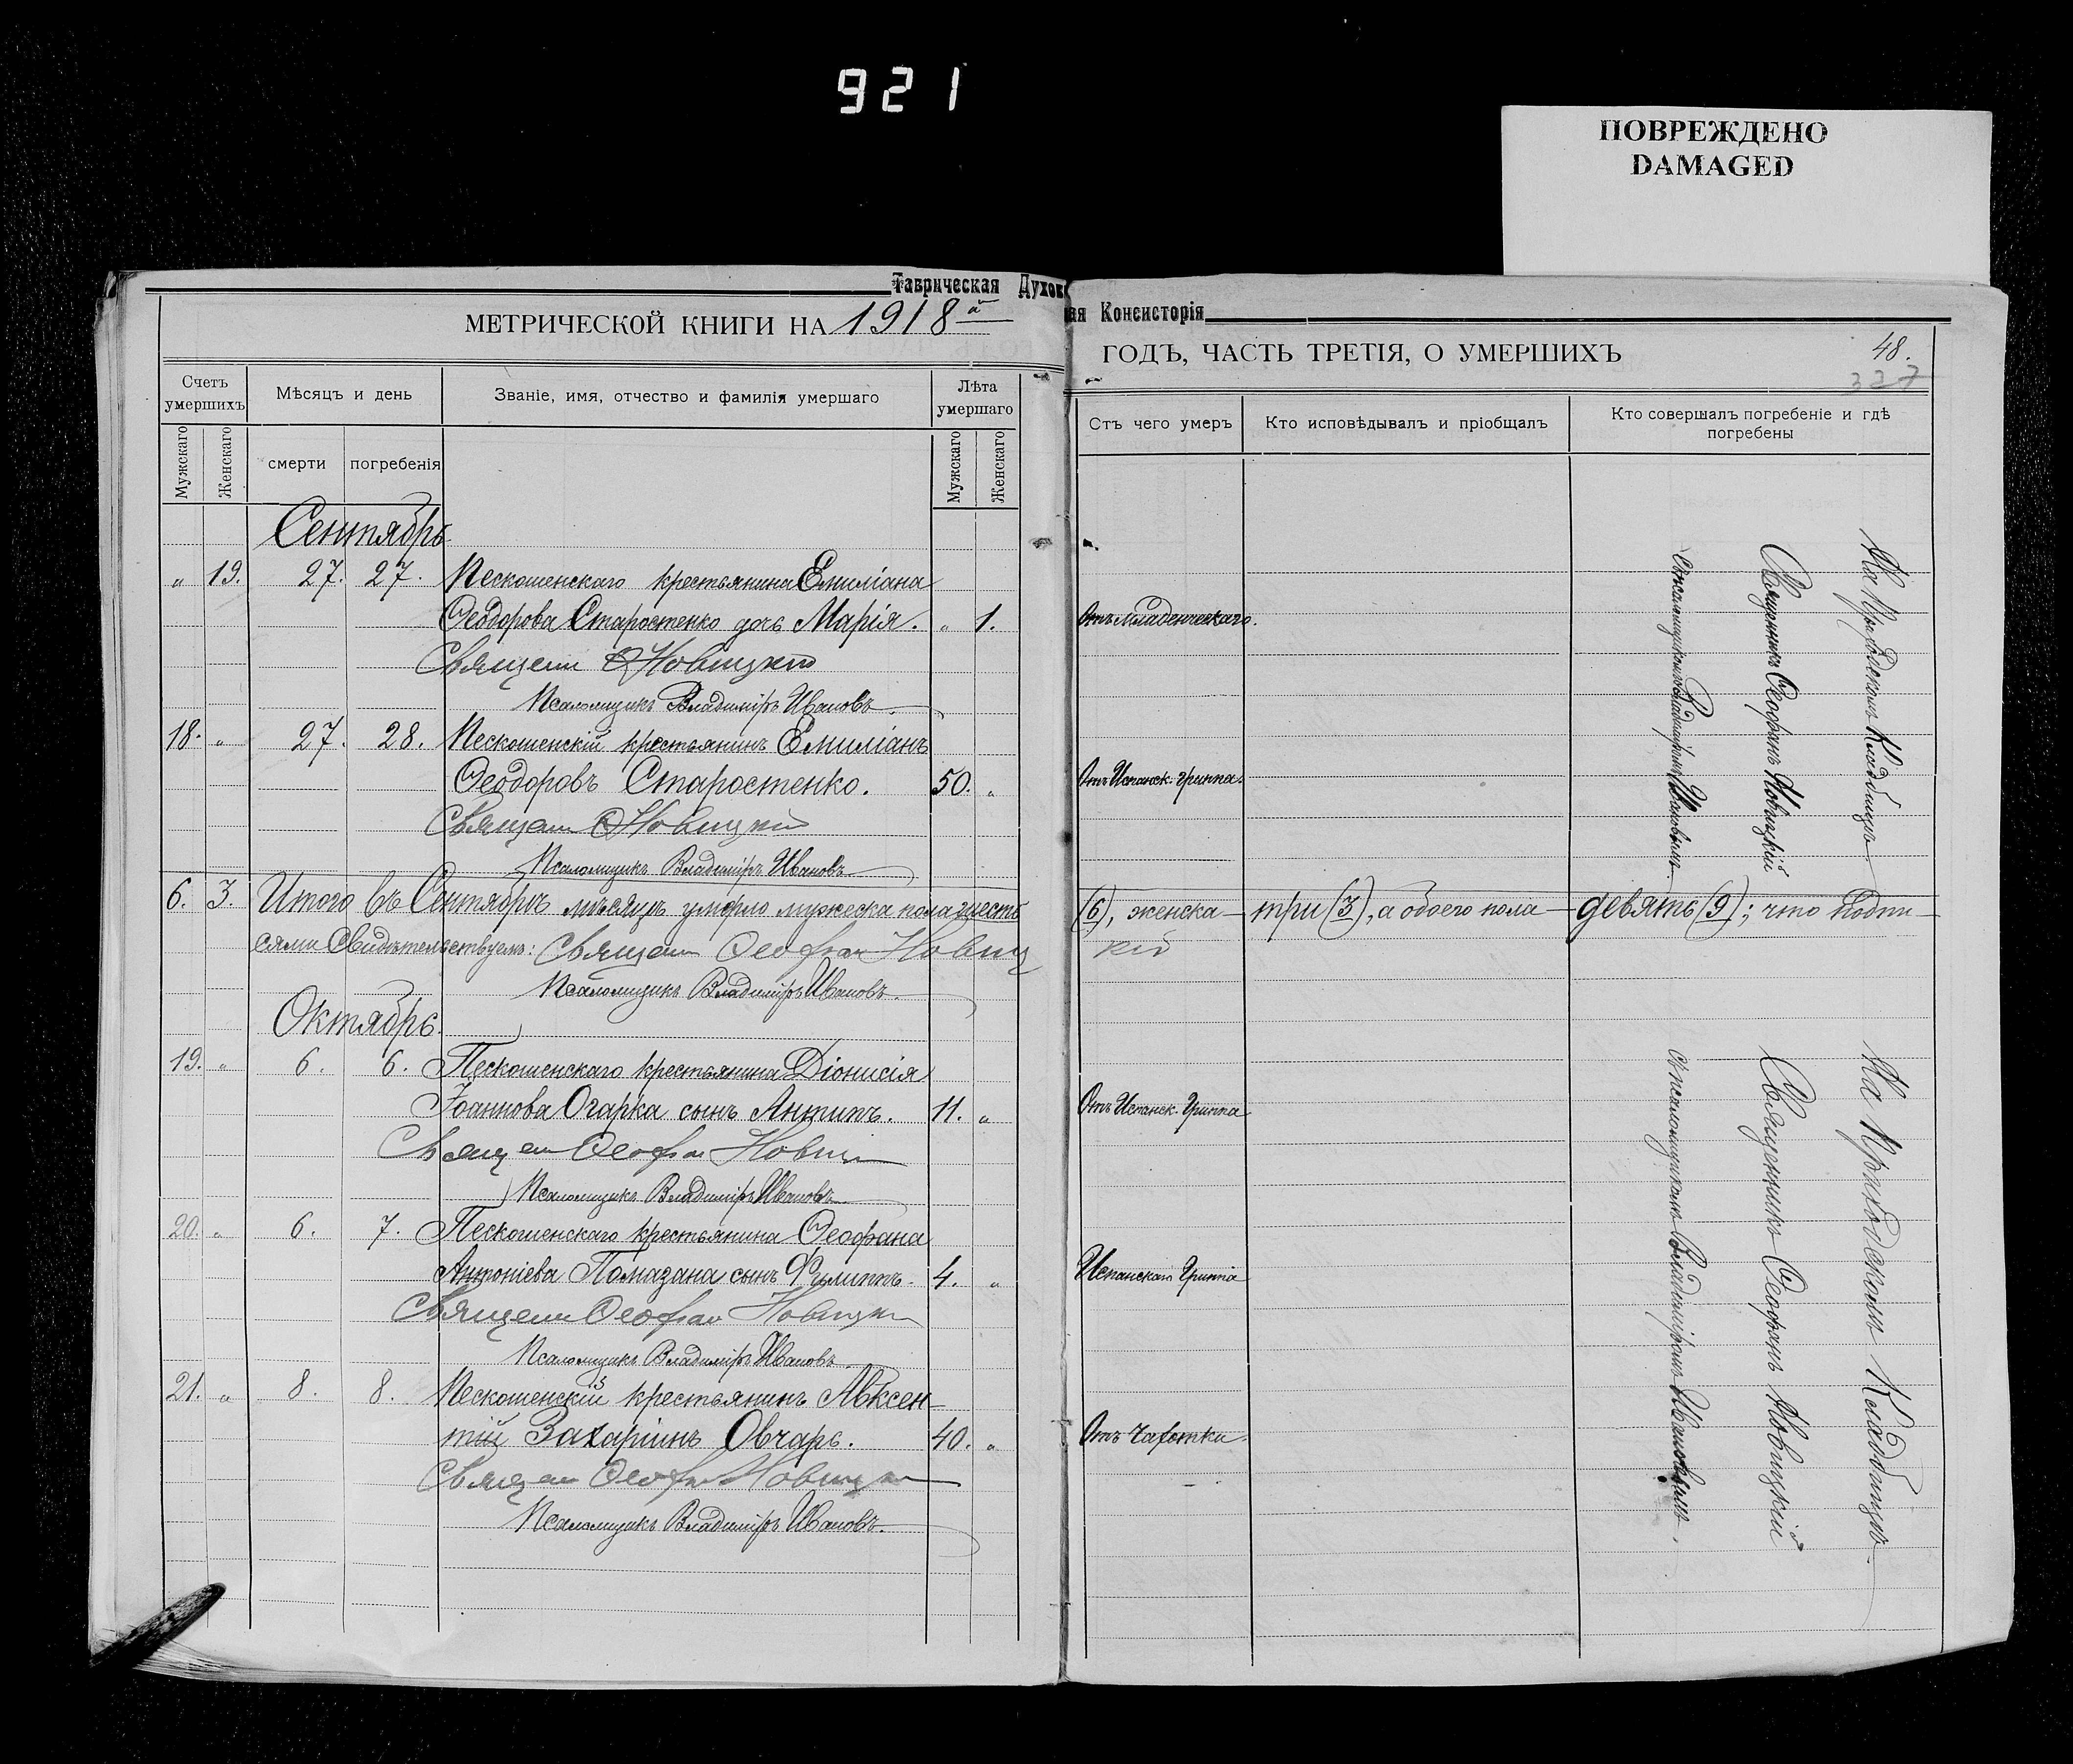 921
ПОВРЕЖДЕНО
DAMAGED
Таврическая Духов
ая Консисторія
МЕТРИЧЕСКОЙ КНИГИ НА 1918й
Счетъ умершихъ
Мѣсяцъ и день
Званіе, имя, отчество и фамилія умершаго
Лѣта умершаго
Мужскаго
Женскаго
смерти
погребенія
Мужскаго
Женскаго
Сентябрь
" 19. 27. 27. Пескошенскаго крестьянина Емиліана
Ѳеодорова Старостенко дочь Марія. " 1.
Священ Ѳ Новицкій
Псаломщикъ Владиміръ Ивановъ
18. " 27. 28. Пескошенскій крестьянинъ Емиліанъ
Ѳеодоровъ Старостенко. 50. "
Священ Ѳ Новицкій
Псаломщикъ Владиміръ Ивановъ
6. 3. Итого въ Сентябрѣ мѣсяцѣ умерло мужеска пола шесть
сями свидѣтельствуемъ: Священ Ѳеофан Новиц
Псаломщикъ Владиміръ Ивановъ.
Октябрь.
19. " 6. 6. Пескошенскаго крестьянина Діонисія
Іоаннова Огарка сынъ Антипъ. 11. "
Священ Ѳеофан Новиц
Псаломщикъ Владиміръ Ивановъ
20. " 6. 7. Пескошенскаго крестьянина Ѳеофана
Антоніева Помазана сынъ Филиппъ. 4. "
Священ Ѳеофан Новицки
Псаломщикъ Владиміръ Ивановъ
21. " 8. 8. Пескошенскій крестьянинъ Авксен-
тій Захаріинъ Овчарь. 40. "
Священ Ѳеофан Новицки
Псаломщикъ Владиміръ Ивановъ.
ГОДЪ, ЧАСТЬ ТРЕТІЯ, О УМЕРШИХЪ
48.
327
Стъ чего умеръ
Кто исповѣдывалъ и пріобщалъ
Кто совершалъ погребеніе и гдѣ погребены
Отъ младенческаго.
Отъ Испанск. гриппа.
(6), женска - три (3), а обоего пола - девять (9); что подпи-
кій
Отъ Испанск. Гриппа
Испанскаго Гриппа
Отъ Чахотки.
На Приходскомъ Кладбищѣ.
Священникъ Ѳеофанъ Новицкій
съ псаломщикомъ Владиміромъ Ивановымъ.
На Приходскомъ Кладбищѣ.
Священникъ Ѳеофанъ Новицкій
съ псаломщикомъ Владиміромъ Ивановымъ.